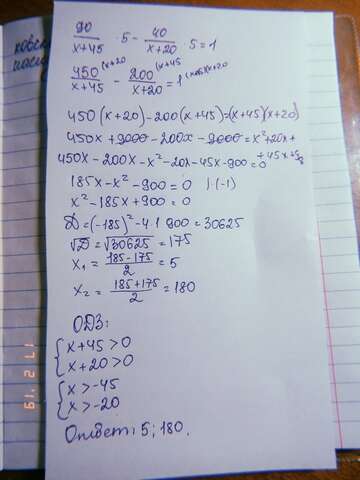 90/(x+45) · 5 - 40/(x+20) · 5 = 1
450/(x+45) (x+20 - 200/(x+20) (x+45 = 1 (x+45)(x+20
450(x+20)-200(x+45)=(x+45)(x+20)
450x+9000-200x-9000=x²+20x+
+45x+900
450x-200x-x²-20x-45x-900=0
185x-x²-900=0 |·(-1)
x²-185x+900=0
D=(-185)²-4·1·900=30625
√D=√30625=175
x₁=(185-175)/2=5
x₂=(185+175)/2=180
ОДЗ:
x+45>0
x+20>0
x>-45
x>-20
Ответ: 5; 180.